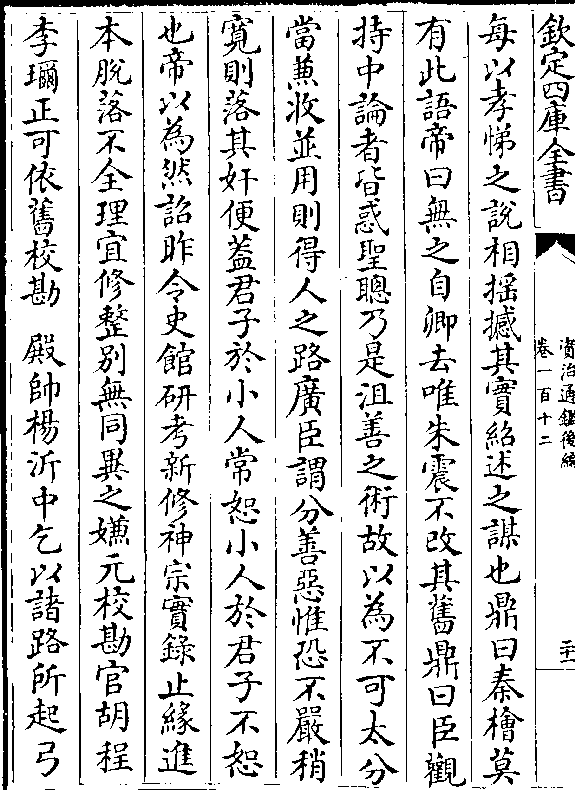 欽定四庫全書
資治通鑑後編
卷一百十二
二十一
每以孝悌之說相揺撼其實紹述之謀也鼎曰秦檜莫
有此語帝曰無之自卿去唯朱震不改其舊鼎曰臣觀
持中論者皆惑聖聰乃是沮善之術故以為不可太分
當兼收並用則得人之路廣臣謂分善惡惟恐不嚴稍
寛則落其奸便葢君子於小人常恕小人於君子不恕
也帝以為然詔昨令史館研考新修神宗實錄止緣進
本脫落不全理宜修整別無同異之嫌元校勘官胡珵
李彌正可依舊校勘 殿帥楊沂中乞以諸路所起弓